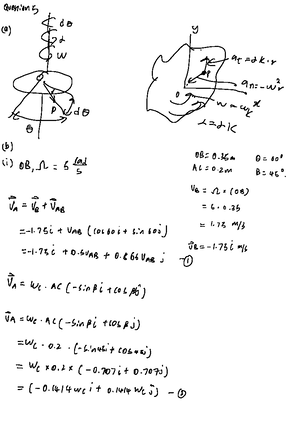 Question 5
(a)
dθ
α
W
O
P
dθ
θ
y
a_t = αk·r
a_n = -w²r
x
w = w_k
α = αk
(b)
(i) OB, Ω = 5 rad/s
OB = 0.35m θ = 60°
AC = 0.2m B = 45°
V_B = Ω × (OB)
= 5 · 0.35
= 1.75 m/s
V⃗_B = -1.75i m/s
V⃗_A = V⃗_B + V⃗_AB
= -1.75i + V_AB (cos60i + sin60j)
= -1.75i + 0.5V_AB i + 0.866V_AB j —①
V⃗_A = W_C · AC (-sinβi + cosβj)
V⃗_A = W_C · AC (-sinβi + cosβj)
= W_C · 0.2 · (-sin45i + cos45j)
= W_C × 0.2 × (-0.707i + 0.707j)
= (-0.1414 W_C i + 0.1414 W_C j) —②